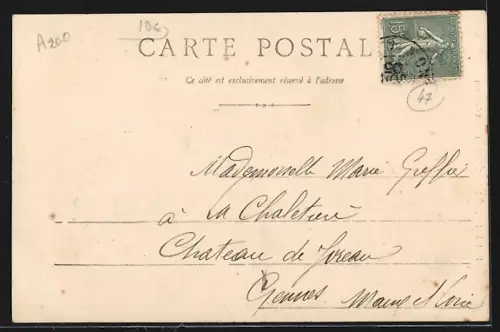 A200
CARTE POSTALE
Ce côté est exclusivement réservé à l'adresse
47
Mademoiselle Marie
à la
Chateau de Joreau
Gennes Maine et Loire